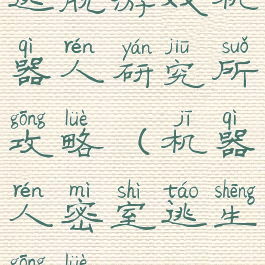 逃脱游戏机
qì rén yán jiū suǒ
器人研究所
gōng lüè jī qì
攻略（机器
rén mì shì táo shēng
人密室逃生
gōng lüè